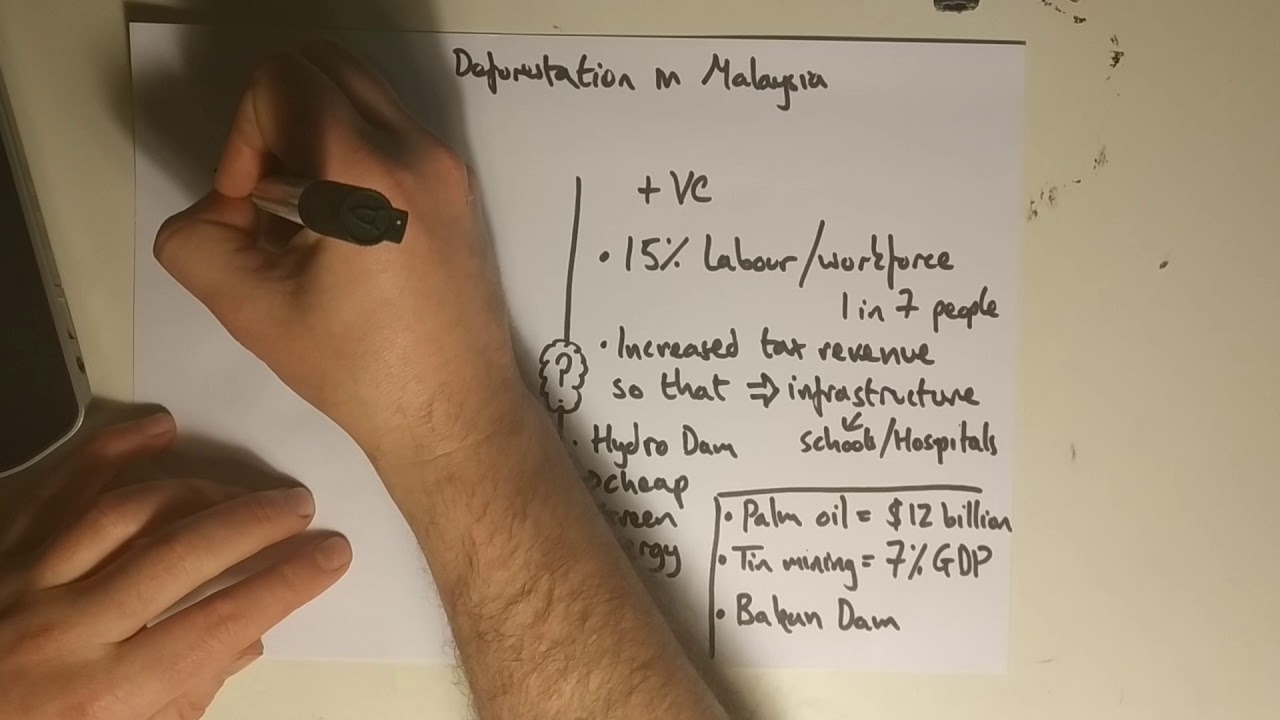 Deforestation in Malaysia
+ VC
• 15% Labour/workforce
1 in 7 people
• Increased tax revenue
so that ⇒ infrastructure
?
schools/Hospitals
• Hydro Dam
cheap
• Palm oil = $12 billion
• Tin mining = 7% GDP
• Bakun Dam